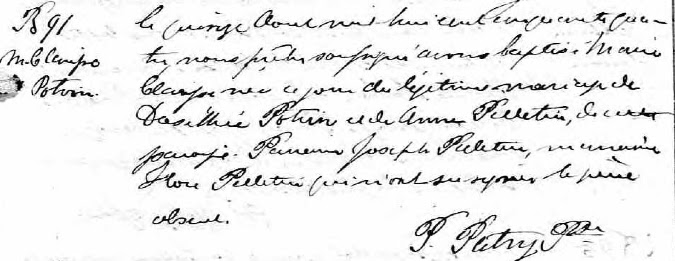 B 91
M. C.
Potvin
le quinze Aout mil huit cent cinquante qua-
tre nous prêtre soussigné avons baptisé Marie
née ce jour du légitime mariage de
Potvin et de Anne Pelletier, de cette
paroisse. Parrain Joseph Pelletier, marraine
Flore Pelletier qui n'ont su signer le père
absent.
P. Patry Ptre